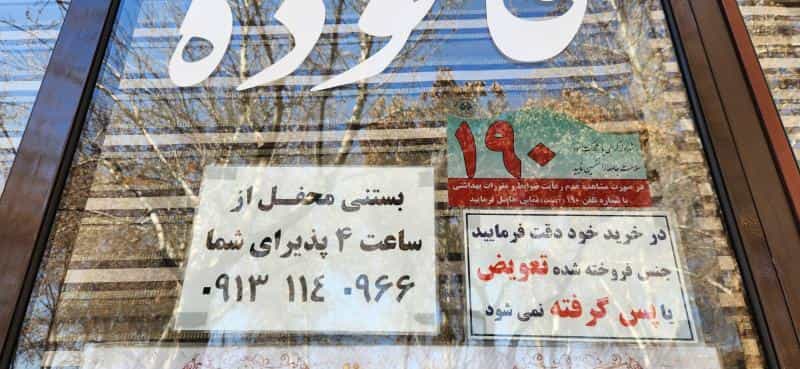 فالوده
۱۹۰
سلامت جامعه را تضمین نمایید
در صورت مشاهده عدم رعایت ضوابط و مقررات بهداشتی
با شماره تلفن ۱۹۰ تماس حاصل فرمایید
بستنی محفل از
ساعت ۴ پذیرای شما
۰۹۱۳ ۱۱٤ ۰۹۶۶
در خرید خود دقت فرمایید
جنس فروخته شده تعویض
یا پس گرفته نمی شود